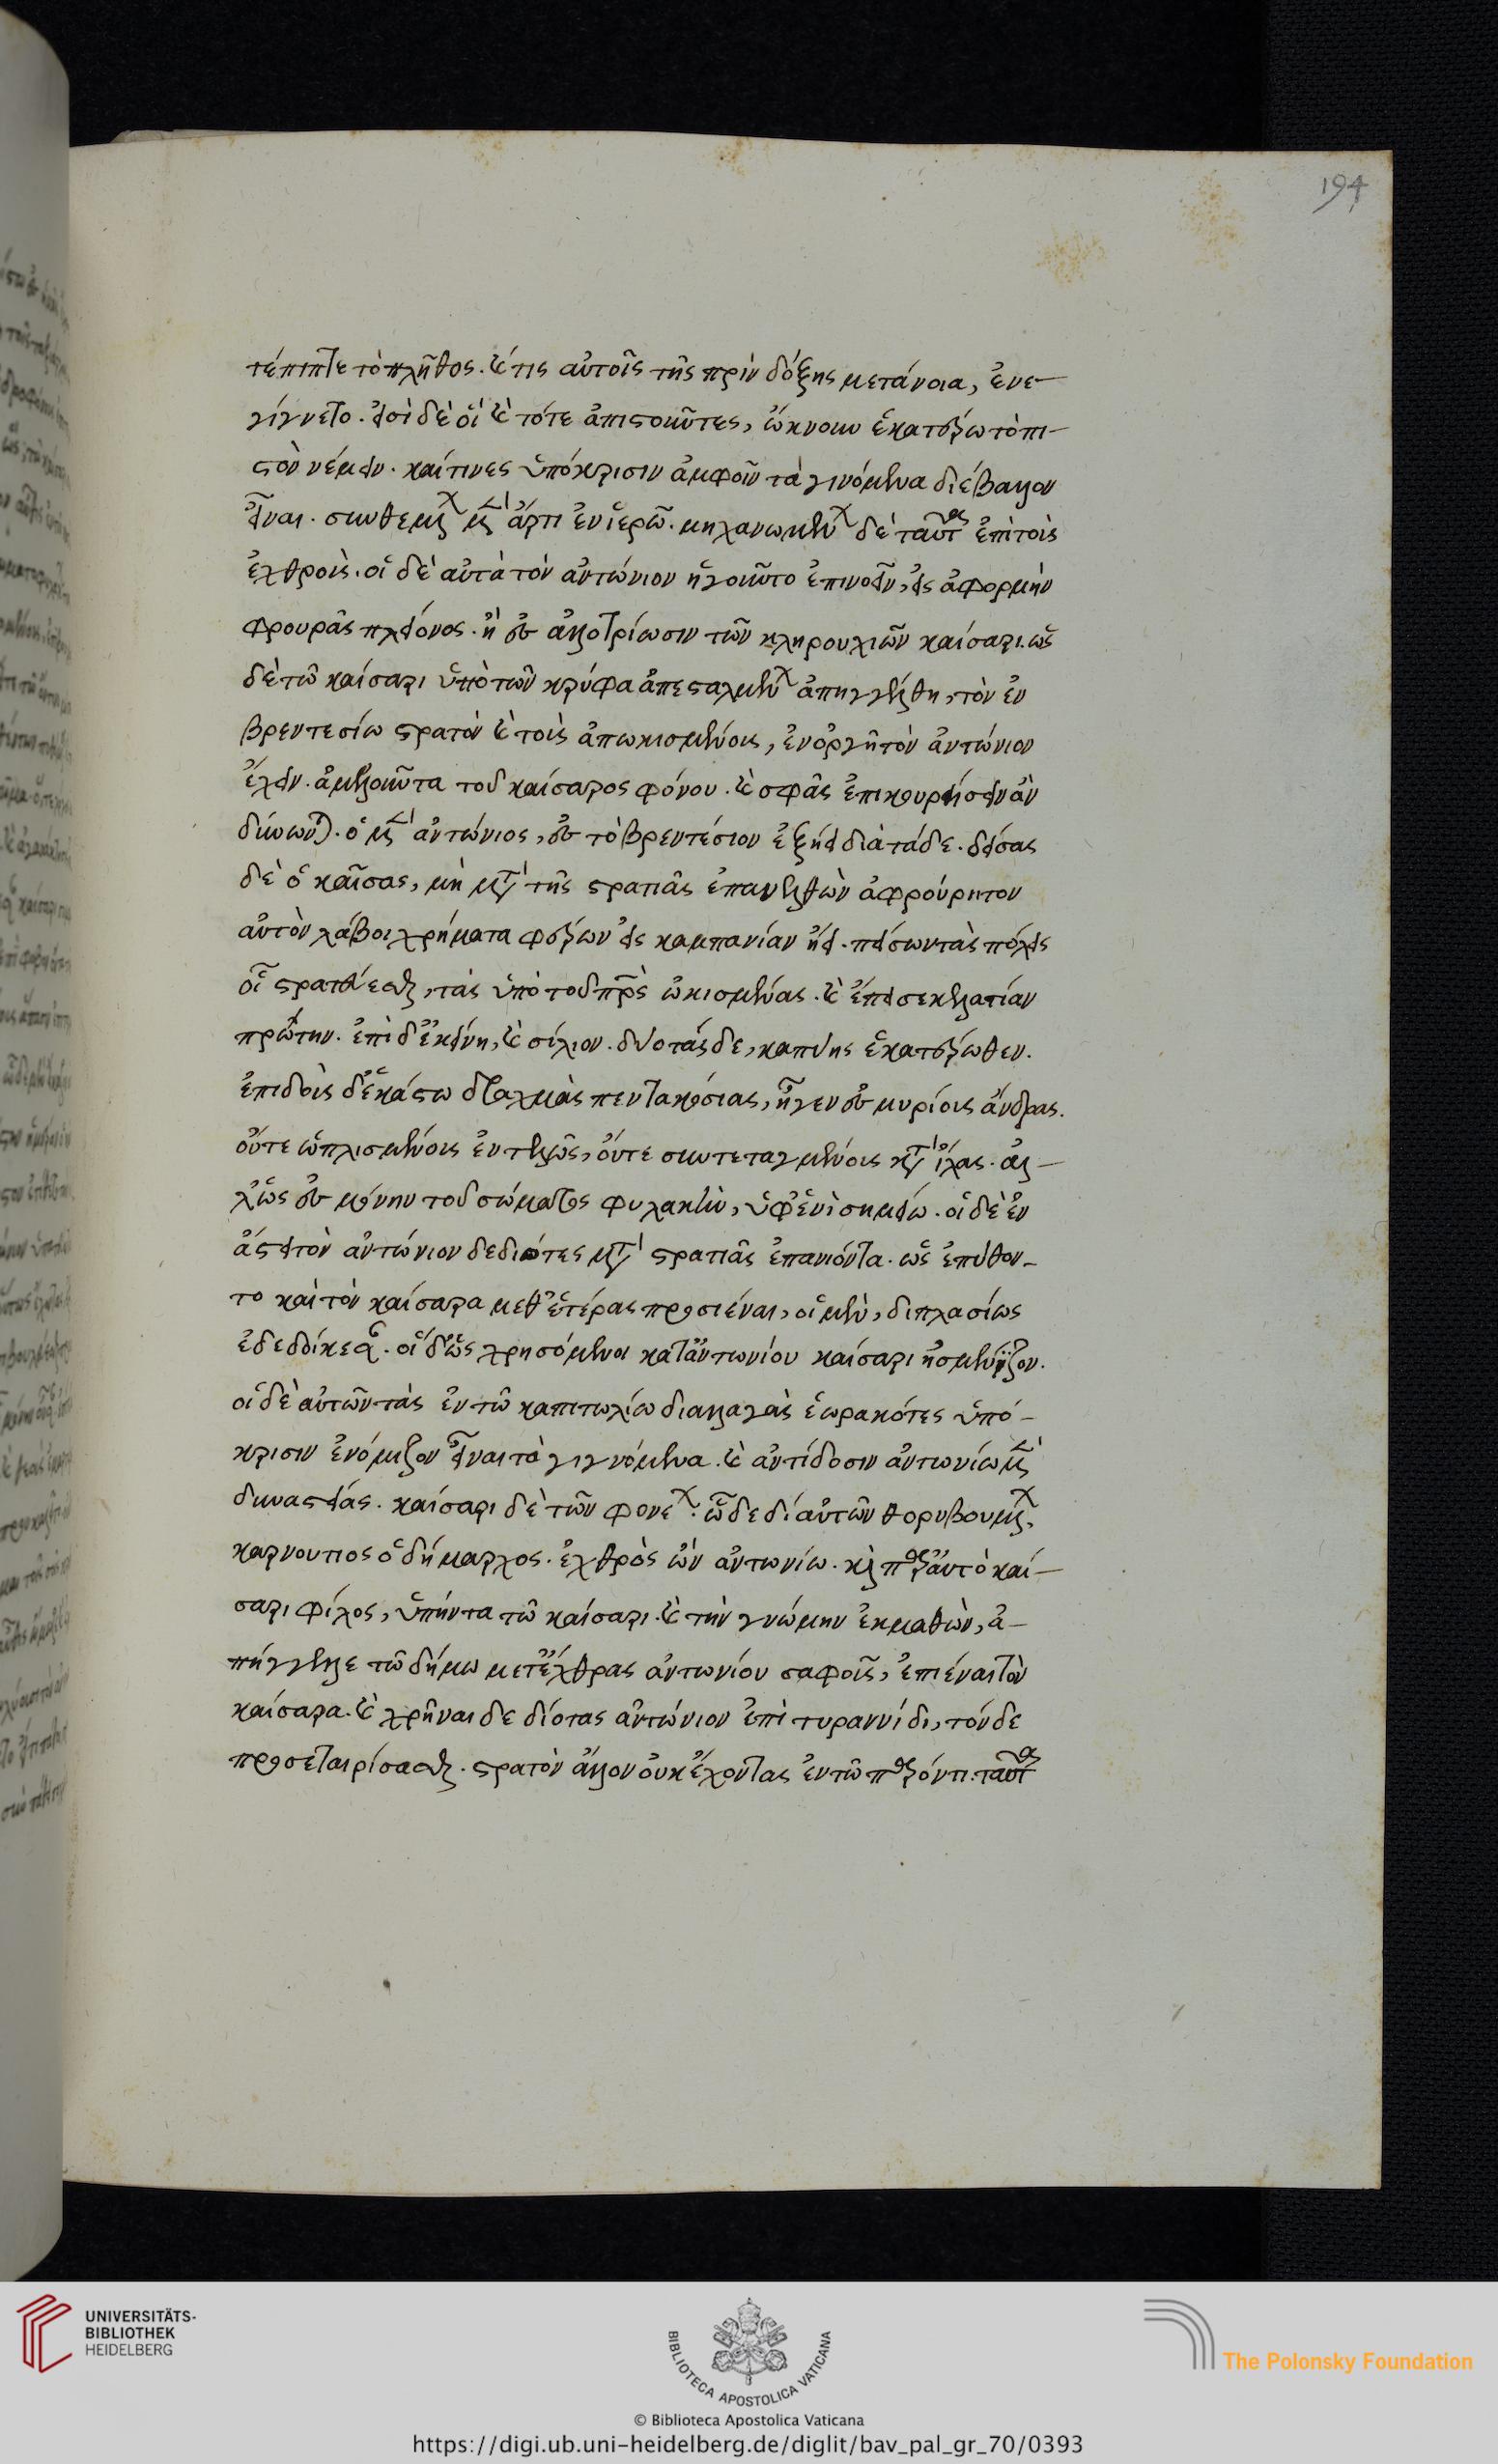 194
τέπιπτε τὸ πλῆθος. καί τις αὐτοῖς τῆς πρὶν δόξης μετάνοια, ἐνε-
γίγνετο. εἰσὶ δὲ οἳ καὶ τότε ἀπιστοῦντες, ὤκνουν ἑκατέρω τὸ πι-
στὸν νέμειν. καί τινες ὑπόκρισιν ἀμφοῖν τὰ γινόμενα διέβαλλον
εἶναι. συνθεμένων μὲν ἄρτι ἐν ἱερῶ. μηχανωμένων δὲ ταῦτα ἐπὶ τοῖς
ἐχθροῖς. οἱ δὲ αὐτὰ τὸν ἀντώνιον ἡγοῦντο ἐπινοεῖν, εἰς ἀφορμὴν
φρουρᾶς πλείονος. ἢ ἐς ἀλλοτρίωσιν τῶν κληρουχιῶν καίσαρι. ὡς
δὲ τῶ καίσαρι ὑπὸ τῶν κρύφα ἀπεσταλμένων ἀπηγγέλθη, τὸν ἐν
βρεντεσίω στρατὸν καὶ τοὺς ἀπωκισμένους, ἐν ὀργῆ τὸν ἀντώνιον
ἔχειν. ἀμελοῦντα τοῦ καίσαρος φόνου. καὶ σφᾶς ἐπικουρήσειν ἂν
δύνωνται. ὁ μὲν ἀντώνιος, ἐς τὸ βρεντέσιον ἐξῄει διὰ τάδε. δείσας
δὲ ὁ καῖσαρ, μὴ μετὰ τῆς στρατιᾶς ἐπανελθὼν ἀφρούρητον
αὐτὸν λάβοι χρήματα φέρων εἰς καμπανίαν ᾔει. πείσων τὰς πόλεις
οἷ στρατεύεσθαι, τὰς ὑπὸ τοῦ πατρὸς ὠκισμένας. καὶ ἔπεισε κελατίαν
πρώτην. ἐπὶ δ' ἐκείνη, καὶ σίλιον. δύο τάσδε, καπύης ἑκατέρωθεν.
ἐπιδοὺς δ' ἑκάστω δραχμὰς πεντακοσίας, ἦγεν ἐς μυρίους ἄνδρας.
οὔτε ὡπλισμένους ἐντελῶς, οὔτε συντεταγμένους κατὰ ἴλας. ἀλ-
λ' ὡς ἐς μόνην τοῦ σώματος φυλακὴν, ὑφ' ἑνὶ σημείω. οἱ δὲ ἐν
ἄστει τὸν ἀντώνιον δεδιότες μετὰ στρατιᾶς ἐπανιόντα. ὡς ἐπύθον-
το καὶ τὸν καίσαρα μεθ' ἑτέρας προσιέναι, οἱ μὲν, διπλασίως
ἐδεδοίκεσαν. οἱ δ' ὡς χρησόμενοι κατ' ἀντωνίου καίσαρι ἠσμένιζον.
οἱ δὲ αὐτῶν τὰς ἐν τῶ καπιτωλίω διαλλαγὰς ἑωρακότες ὑπό-
κρισιν ἐνόμιζον εἶναι τὰ γιγνόμενα. καὶ ἀντίδοσιν ἀντωνίω μὲν
δυναστείας. καίσαρι δὲ τῶν φονέων. ὧδε δὶ αὐτῶν θορυβουμένων,
καρνουτιος ὁ δήμαρχος. ἐχθρὸς ὢν ἀντωνίω. καὶ παρ' αὐτὸ καί-
σαρι φίλος, ὑπήντα τῶ καίσαρι. καὶ τὴν γνώμην ἐκμαθὼν, ἀ-
πήγγελλε τῶ δήμω μετ' ἔχθρας ἀντωνίου σαφοῦς, ἐπιέναι τὸν
καίσαρα. καὶ χρῆναι δεδίοτας ἀντώνιον ἐπὶ τυραννίδι, τόνδε
προσεταιρίσασθαι. στρατὸν ἄλλον οὐκ ἔχοντας ἐν τῶ παρόντι. ταῦτα
UNIVERSITÄTS-
BIBLIOTHEK
HEIDELBERG
BIBLIOTECA APOSTOLICA VATICANA
The Polonsky Foundation
© Biblioteca Apostolica Vaticana
https://digi.ub.uni-heidelberg.de/diglit/bav_pal_gr_70/0393